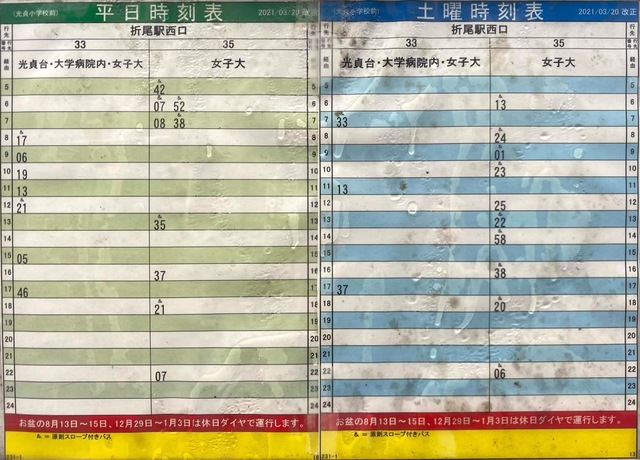 (光貞小学校前) 平日時刻表 2021/03/20 改
行先 折尾駅西口 行先
行先番号 33 35
経由 光貞台・大学病院内・女子大 女子大
5 & 42 5
6 & 07 52 6
7 08 38 7
8 & 17 8
9 06 9
10 19 10
11 13 11
12 & 21 12
13 & 35 13
14 14
15 05 15
16 37 16
17 46 17
18 & 21 18
19 19
20 20
21 21
22 07 22
23 23
24 24
お盆の8月13日~15日、12月29日~1月3日は休日ダイヤで運行します。
& = 原則スロープ付きバス
231-1
(光貞小学校前) 土曜時刻表 2021/03/20 改正
行先 折尾駅西口 行先
33 35 行先番号
経由 光貞台・大学病院内・女子大 女子大 経由
5 5
6 & 13 6
7 33 7
8 & 24 8
9 & 01 9
10 & 23 10
11 13 11
12 25 12
13 & 22 13
14 & 58 14
15 15
16 & 38 16
17 37 17
18 & 20 18
19 19
20 20
21 21
22 & 06 22
23 23
24 24
お盆の8月13日~15日、12月29日~1月3日は休日ダイヤで運行します。
& = 原則スロープ付きバス
231-1